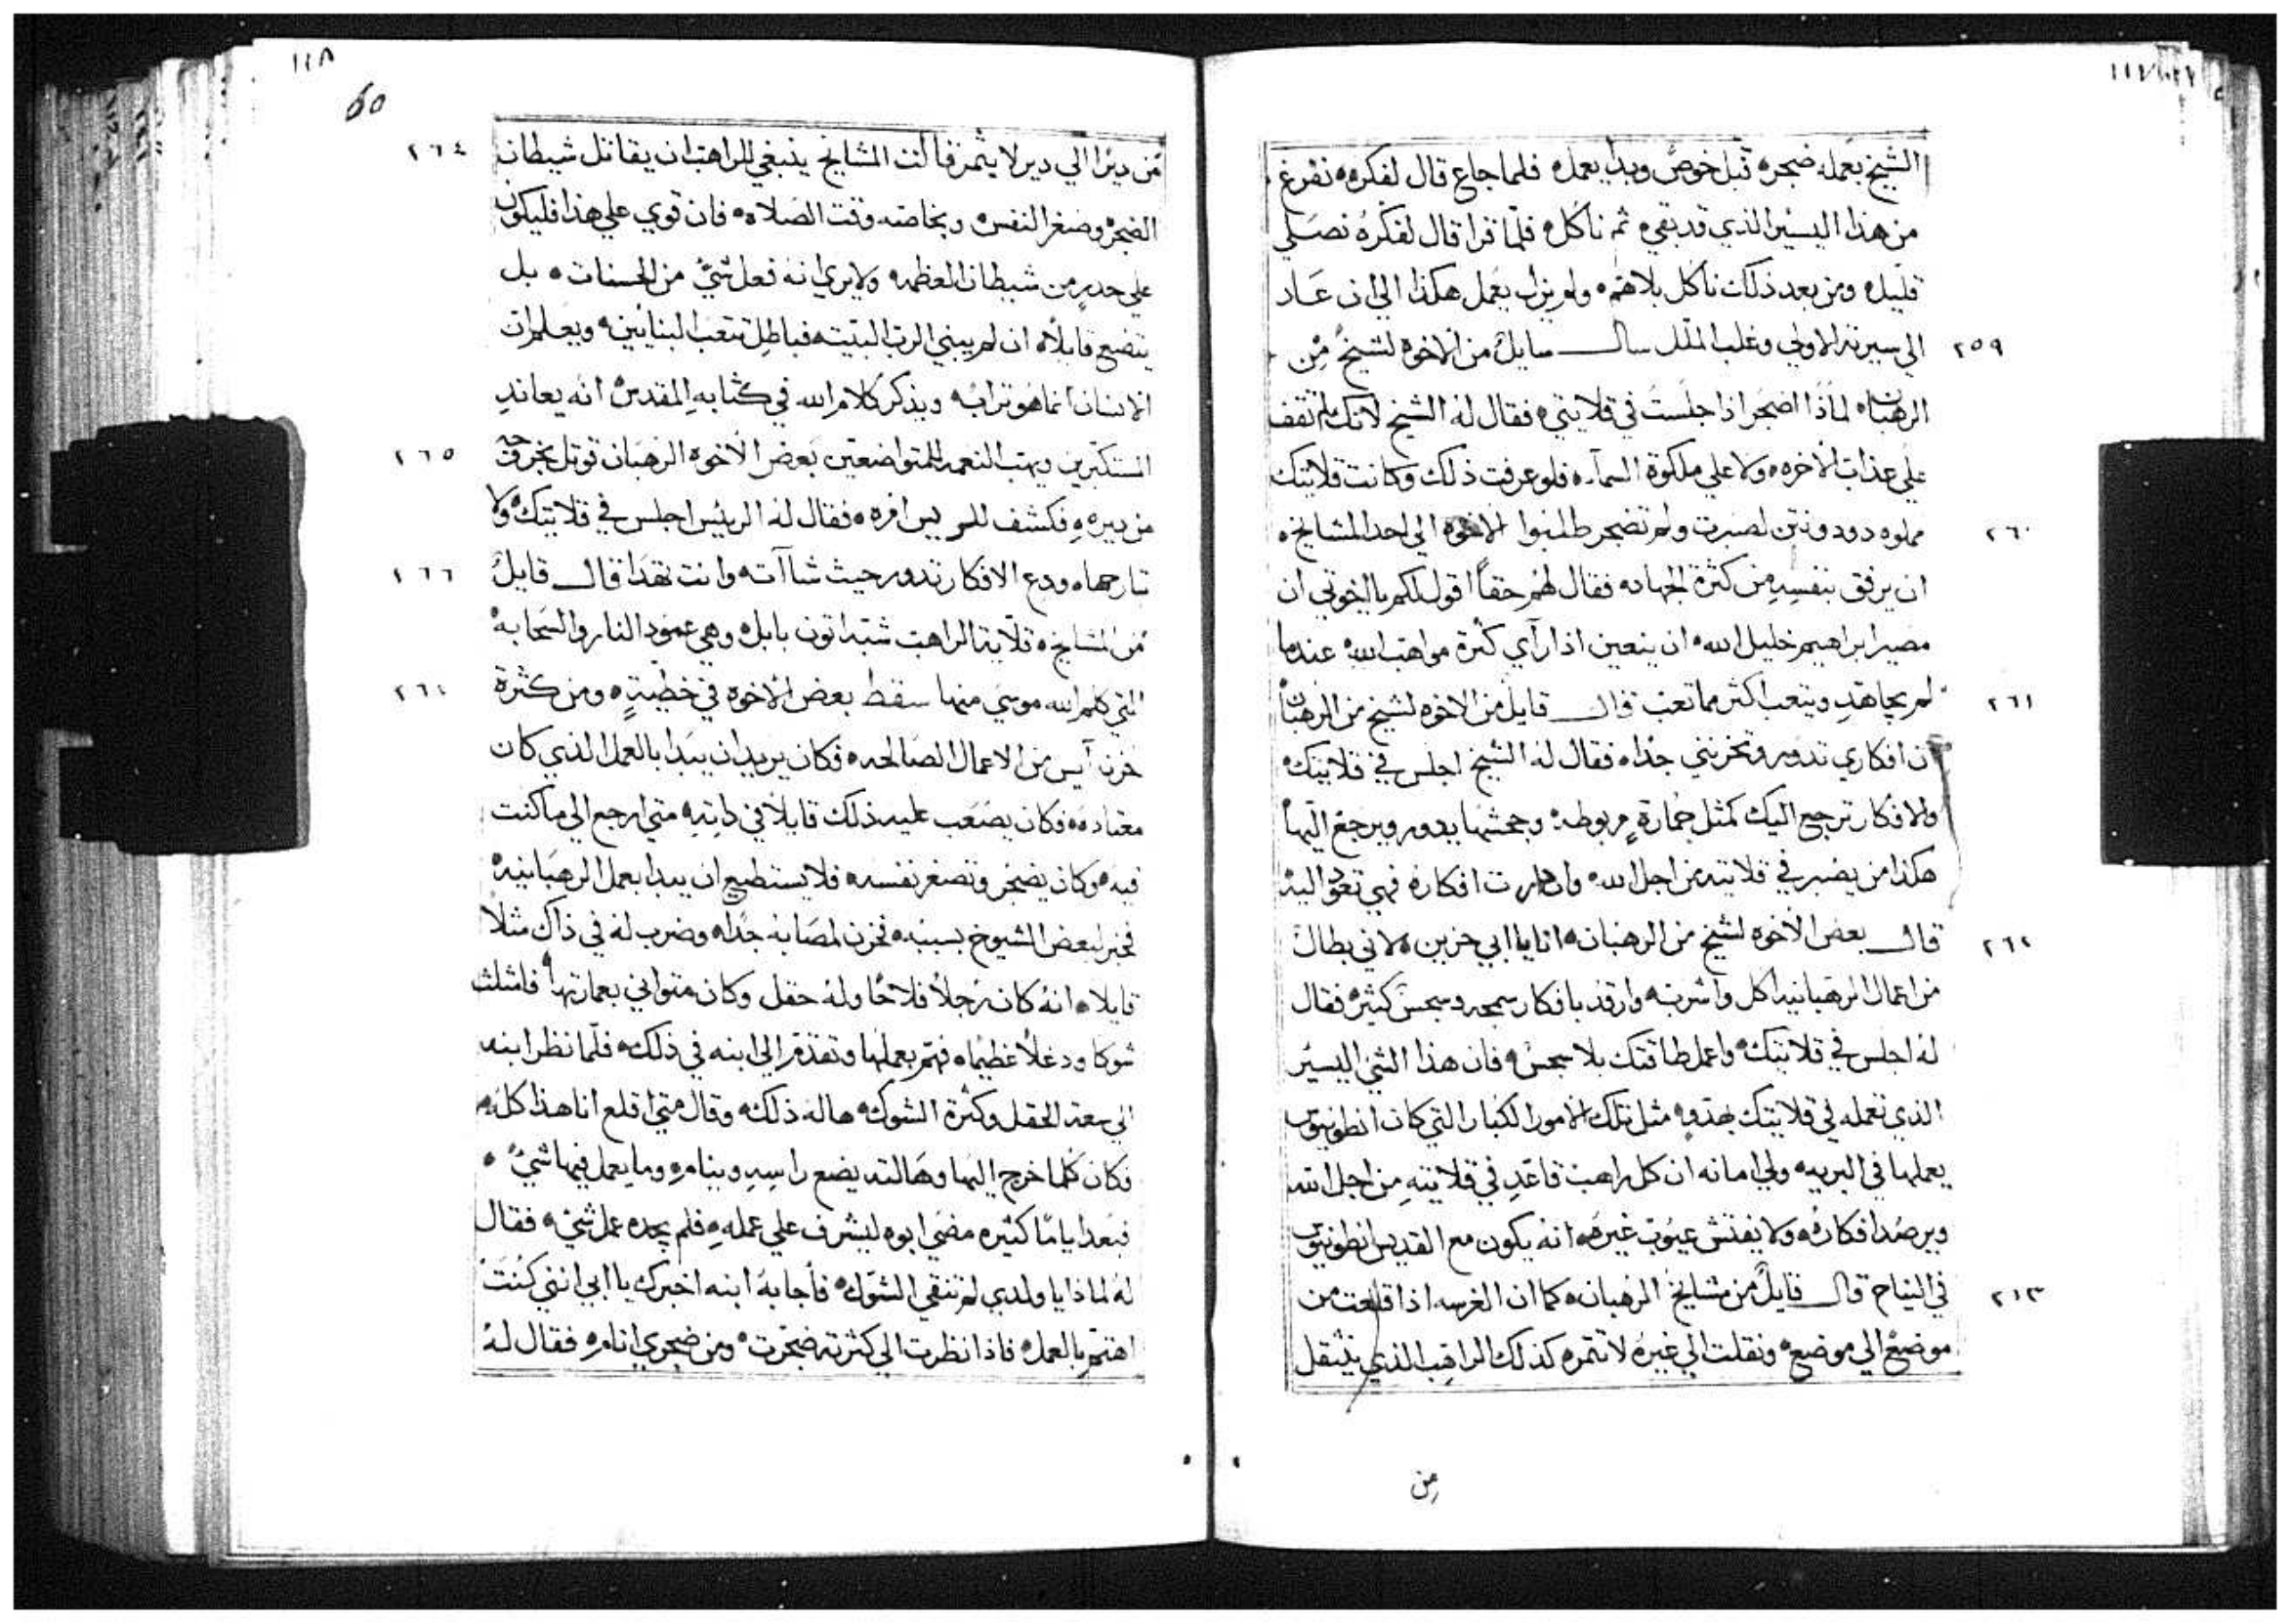 الشيخ بعمله ضجره قبل خوص وبدا يعمله فلما جاع قال لفكره نفرغ
من هذا اليسير الذي قد بقي ثم ناكل فلما قرا قال لفكره نصلي
قليله ومن بعد ذلك ناكل بلا هم ولم يزل يعمل هكذا الي ان عاد
٢٥٩ الي سيرته الاولي وغلب الملل سال سايل من الاخوه لشيخ من
الرهبان لماذا اضجر اذا جلست في قلايتي فقال له الشيخ لانك لم تقف
علي عذاب الاخره ولا علي ملكوة السمآء فلو عرفت ذلك وكانت قلايتك
٢٦٠ مملوه دود ونتن لصبرت ولم تضجر طلبوا الاخوه الي احد المشايخ
ان يرفق بنفسه من كثرة الجهاد فقال لهم حقاً اقول لكم يا اخوتي ان
مصير ابراهيم خليل الله ان ينعين اذا رآي كثرة مواهب الله عندما
٢٦١ لم يجاهد ويتعب اكثر مما تعب قال قايل من الاخوه لشيخ من الرهبان
ان افكاري تدور وتحزنني جدا فقال له الشيخ اجلس في قلايتك
والافكار ترجع اليك كمثل حمارة مربوطه وجحشها يدور ويرجع اليها
هكذا من يصبر في قلايته من اجل الله وان دارت افكاره فهي تعود اليه
٢٦٢ قال بعض الاخوه لشيخ من الرهبان انا يا ابي حزين لاني بطال
من اعمال الرهبانيه اكل واشرب وارقد بافكار سمجه وسجس كثيره فقال
له اجلس في قلايتك واعمل طاقتك بلا سجس فان هذا الشي اليسير
الذي تعمله في قلايتك بهدو مثل تلك الامور الكبار التي كان انطونيوس
يعملها في البريه ولي امانه ان كل راهب قاعد في قلايته من اجل الله
ويرصد افكاره ولا يفتش عيوب غيره انه يكون مع القديس انطونيوس
٢٦٣ في النياح قال قايل من مشايخ الرهبان كما ان الغرسه اذا قلعت من
موضع الي موضع ونقلت الي غيره لا تثمر كذلك الراهب الذي ينتقل
من
١١٨
60
٢٦٤ من دير الي دير لا يثمر قالت المشايخ ينبغي للراهب ان يقاتل شيطان
الضجر وصغر النفس وبخاصه وقت الصلاه فان قوي علي هذا فليكون
علي حدر من شيطان العظمه ولا يري انه فعل شي من الحسنات بل
يتضع قايلاً ان لم يبني الرب البيت فباطل تتعب البنايين ويعلم ان
الانسان انما هو تراب ويذكر كلام الله في كتابه المقدس انه يعاند
٢٦٥ المستكبرين ويهب النعمه للمتواضعين بعض الاخوه الرهبان قوتل بخروجه
من ديره فكشف للريس امره فقال له الرئيس اجلس في قلايتك ولا
٢٦٦ تبارحها ودع الافكار تدور حيث شاآت وانت تهدا قال قايل
من المشايخ قلاية الراهب شبه اتون بابل وهي عمود النار والسحابه
التي كلم الله موسي منها سقط بعض الاخوه في خطيته ومن كثرة
حزنه آيس من الاعمال الصالحه فكان يريد ان يبدا بالعمل الذي كان
معتاده فكان يصعب عليه ذلك قايلاً في داته متي ارجع الي ما كنت
فيه وكان يضجر وتصغر نفسه فلا يستطيع ان يبدا بعمل الرهبانيه
فخبر لبعض الشيوخ بسببه فحزن لمصابه جدا وضرب له في ذاك مثلاً
قايلا انه كان رجلاً فلاحًا وله حقل وكان متواني بعمارتها فامتلت
شوكا ودغلاً عظيما فهم بعملها وتقدم الي ابنه في ذلك فلما نظر ابنه
الي سعة الحقل وكثرة الشوك هاله ذلك وقال متي اقلع انا هذا كله
فكان كلما خرج اليها وهالته يضع راسه وينام وما يعمل فيها شي
فبعد اياما كثيره مضي ابوه ليشرف علي عمله فلم يجده عمل شي فقال
له لماذا يا ولدي لم تنقي الشوك فأجابه ابنه اخبرك يا ابي انني كنت
اهتم بالعمل فاذا نظرت الي كثرته ضجرت ومن ضجري انام فقال له